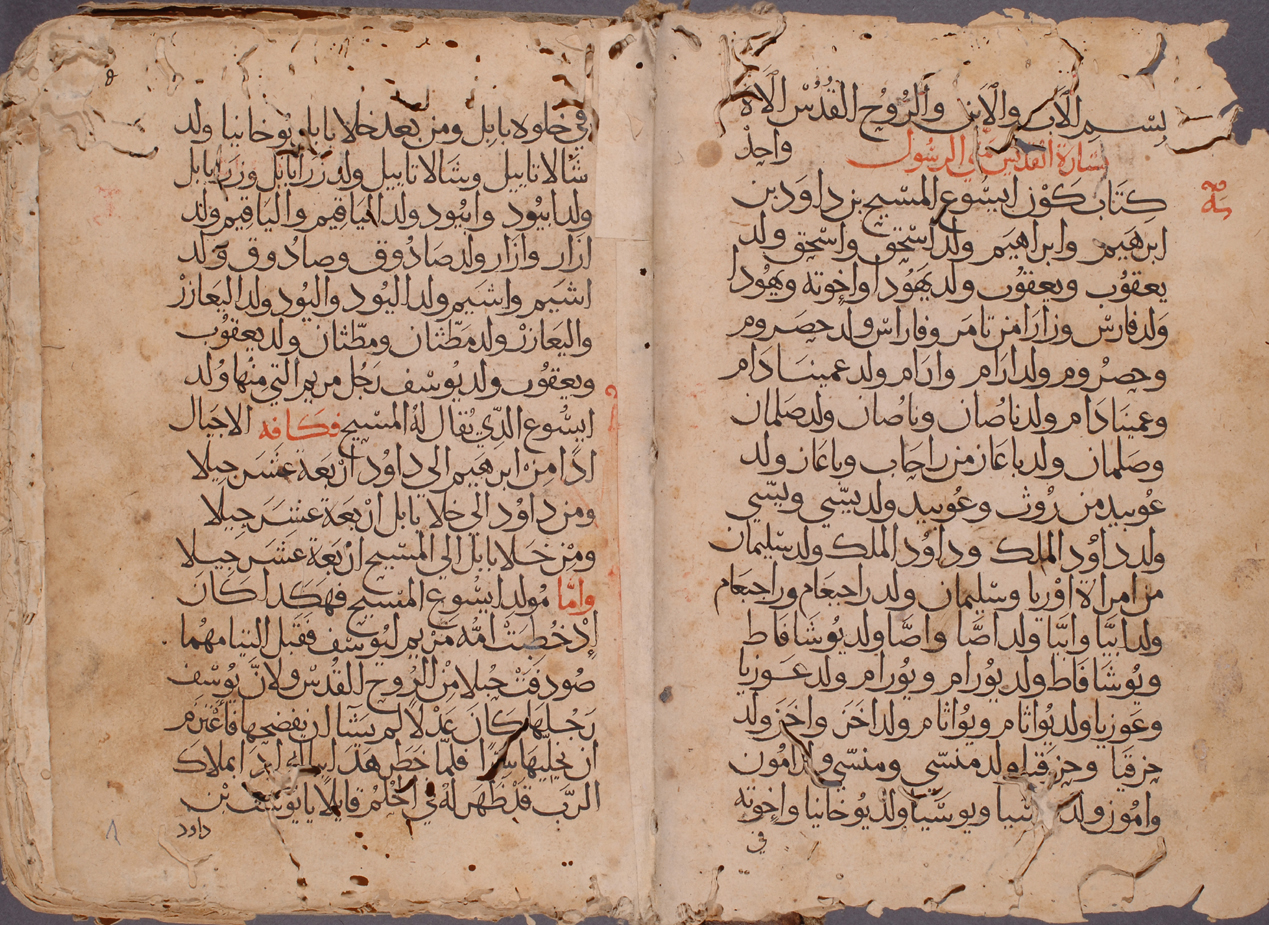 بسم الاب والابن والروح القدس الاه
واحد
بشارة القديس متى الرسول
كتاب كون ايسوع المسيح بن داود بن
ابرهيم وابراهيم ولد اسحق واسحق ولد
يعقوب ويعقوب ولد يهودا واخوته ويهودا
ولد فارس وزارا من ثامر وفارس ولد حصروم
وحصروم ولد ارام وارام ولد عمينادام
وعمينادام ولد ناصان وناصان ولد صلمان
وصلمان ولد باعاز من راحاب وباعاز ولد
عوبيد من روث وعوبيد ولد يسى ويسى
ولد داود الملك وداود الملك ولد سليمان
من امراة اوريا وسليمان ولد راحبعام وراحبعام
ولد ابيا وابيا ولد اصا واصا ولد يوشافاط
ويوشافاط ولد يورام ويورام ولد عوزيا
وعوزيا ولد يواثام ويواثام ولد اخز واخز ولد
حزقيا وحزقيا ولد منسى ومنسى ولد امون
وامون ولد يوسيا ويوسيا ولد يوخانيا واخوته
في
في خلوه بابل ومن بعد خلا بابل يوخانيا ولد
شالاتاييل وشالاتاييل ولد زرابابل وزرابابل
ولد ابيود وابيود ولد الياقيم والياقيم ولد
ازار وازار ولد صادوق وصادوق ولد
اشيم واشيم ولد اليود واليود ولد اليعازر
واليعازر ولد مطثان ومطثان ولد يعقوب
ويعقوب ولد يوسف رجل مريم التي منها ولد
ايسوع الذي يقال له المسيح فكافه الاجيال
اذا من ابرهيم الى داود اربعة عشر جيلا
ومن داود الى خلا بابل اربعة عشر جيلا
ومن خلا بابل الى المسيح اربعة عشر جيلا
واما مولد ايسوع المسيح فهكذا كان
اذ خطبت امه مريم ليوسف فقبل التيامهما
صودفت حبلا من الروح القدس ولان يوسف
رجلها كان عدلا لم يشا ان يفضحها فاعتزم
ان يخليها سرا فلما خطر هذا اذا ملاك
الرب قد ظهر له في الحلم قايلا يا يوسف بن
داود
٨